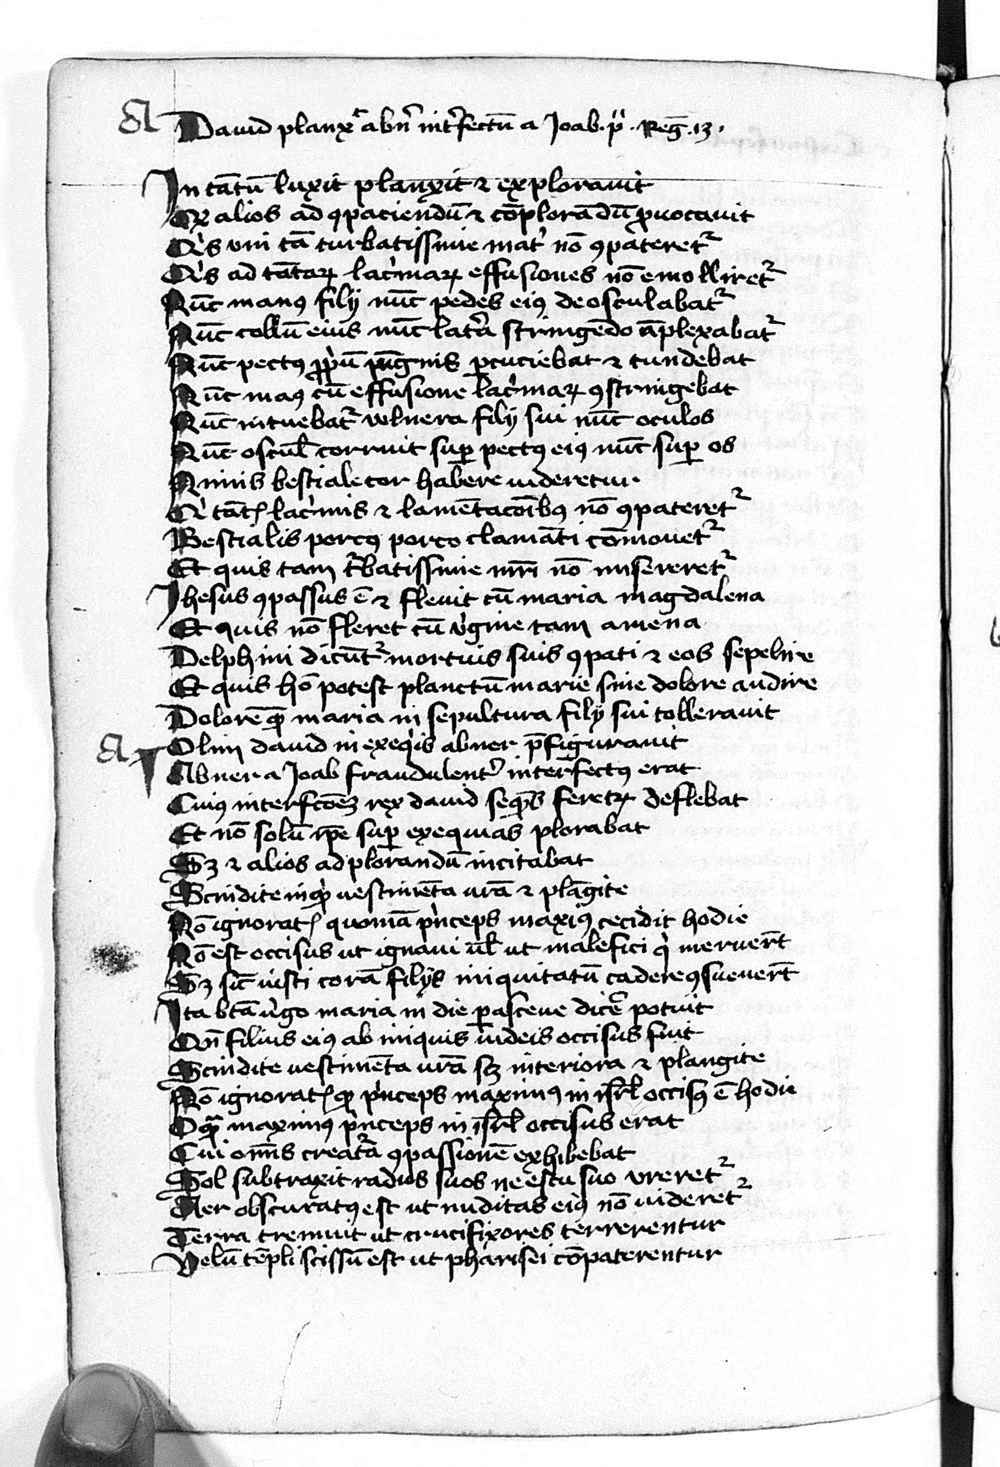 a David planxit abner interfectū a Joab · p̄ · Reḡ · 13 ·
In tātū luxit planxit ⁊ explorauit
Qꝫ alios ad ꝯpaciendū ⁊ cōplorādū ꝓuocauit
Qͥs vni tā turbatissime matͥ nō ꝯpateretᷣ
Qͥs ad tātaꝝ lacͥmaꝝ effusiones nō emolliretᷣ
Nūc manꝰ filij nūc pedes eiꝰ deosculabatᷣ
Nūc collū eius nūc latᷓa stringēdo āplexabatᷣ
Nūc pectꝰ ꝓpͥū pūgnis ꝑcuciebat ⁊ tundebat
Nūc manꝰ cū effusione lacͥmaꝝ ꝯstringebat
Nūc intuebatᷣ vulnera filij sui nūc oculos
Nūc osculꝉ corruit suꝑ pectꝰ eiꝰ nūc suꝑ os
Nimis bestiale cor habere uideretur ·
Qͥ tātꝭ lacͥmis ⁊ lamētacōībꝰ nō ꝯpateretᷣ
Bestialis porcꝰ porco clamāti cōmouetᷣ
Et quis tam tᷣbatissime mr̄i nō misereretᷣ
Jhesus ꝯpassus ē ⁊ fleuit cū maria magdalena
Et quis nō fleret cū vͥgine tam amena
Delphini dicūtᷣ mortuis suis ꝯpati ⁊ eos sepelire
Et quis hō potest planctū marie sine dolore audire
Dolorē qꝫ maria in sepultura filij sui tollerauit
a Olim dauid in exeqͥis abner p̄figurauit
Abner a Joab fraudulentͥ interfectꝰ erat
Cuius interfcōeꝫ rex dauid seqͣns feretꝝ deflebat
Et nō solū ip̄e suꝑ exequias plorabat
Sꝫ ⁊ alios ad plorandū incitabat
Scindite inqͥt vestimēta vrā ⁊ plāgite
Nō ignoratꝭ quoniā pͥnceps maxīꝰ cecidit hodie
Nō est occisus ut ignaui uꝉ ut malefici qͥ meruer̄t
Sꝫ sic̄ iusti corā filijs iniquitatū cadere ꝯsueuer̄t
Ita btā vͥgo maria in die ꝑasceue dicͤe potuit
Qn̄ filius eiꝰ ab iniquis iudeis occisus fuit
Scindite vestimēta vrā sꝫ interiora ⁊ plangite
Nō ignoratꝭ qꝫ pͥnceps maximꝰ in isrꝉ occisꝰ ē hodie
O qͣ maximus pͥnceps in isrꝉ occisus erat
Cui om̄s creatᷓa ꝯpassionē exhibebat
Sol subtraxit radios suos ne estu suo vreretᷣ
Aer obscuratꝰ est ut nuditas eiꝰ nō uideretᷣ
Terra tremuit ut crucifixores terrerentur
Velū tēpli scissū est ut pharisei cōpaterentur